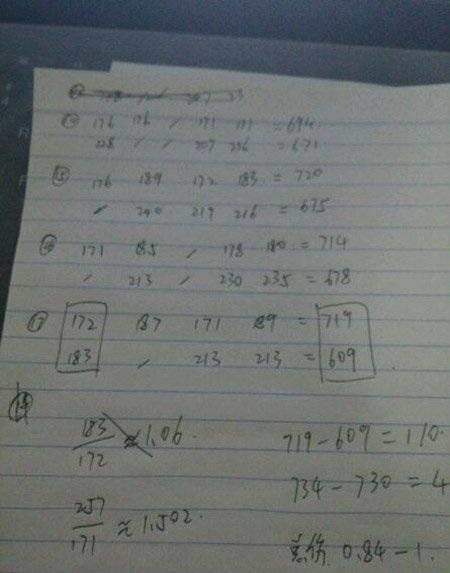 ⑭ 176 176 / 171 171 = 694
228 / / 207 236 = 671
⑮ 176 189 172 183 = 720
/ 240 219 216 = 675
⑯ 171 185 / 178 180 = 714
/ 213 / 230 235 = 678
⑰ 172 187 171 189 = 719
183 / 213 213 = 609
183/172 ≈ 1.06.
719-609=110.
734-730=4
257/171 ≈ 1.502.
0.84-1.